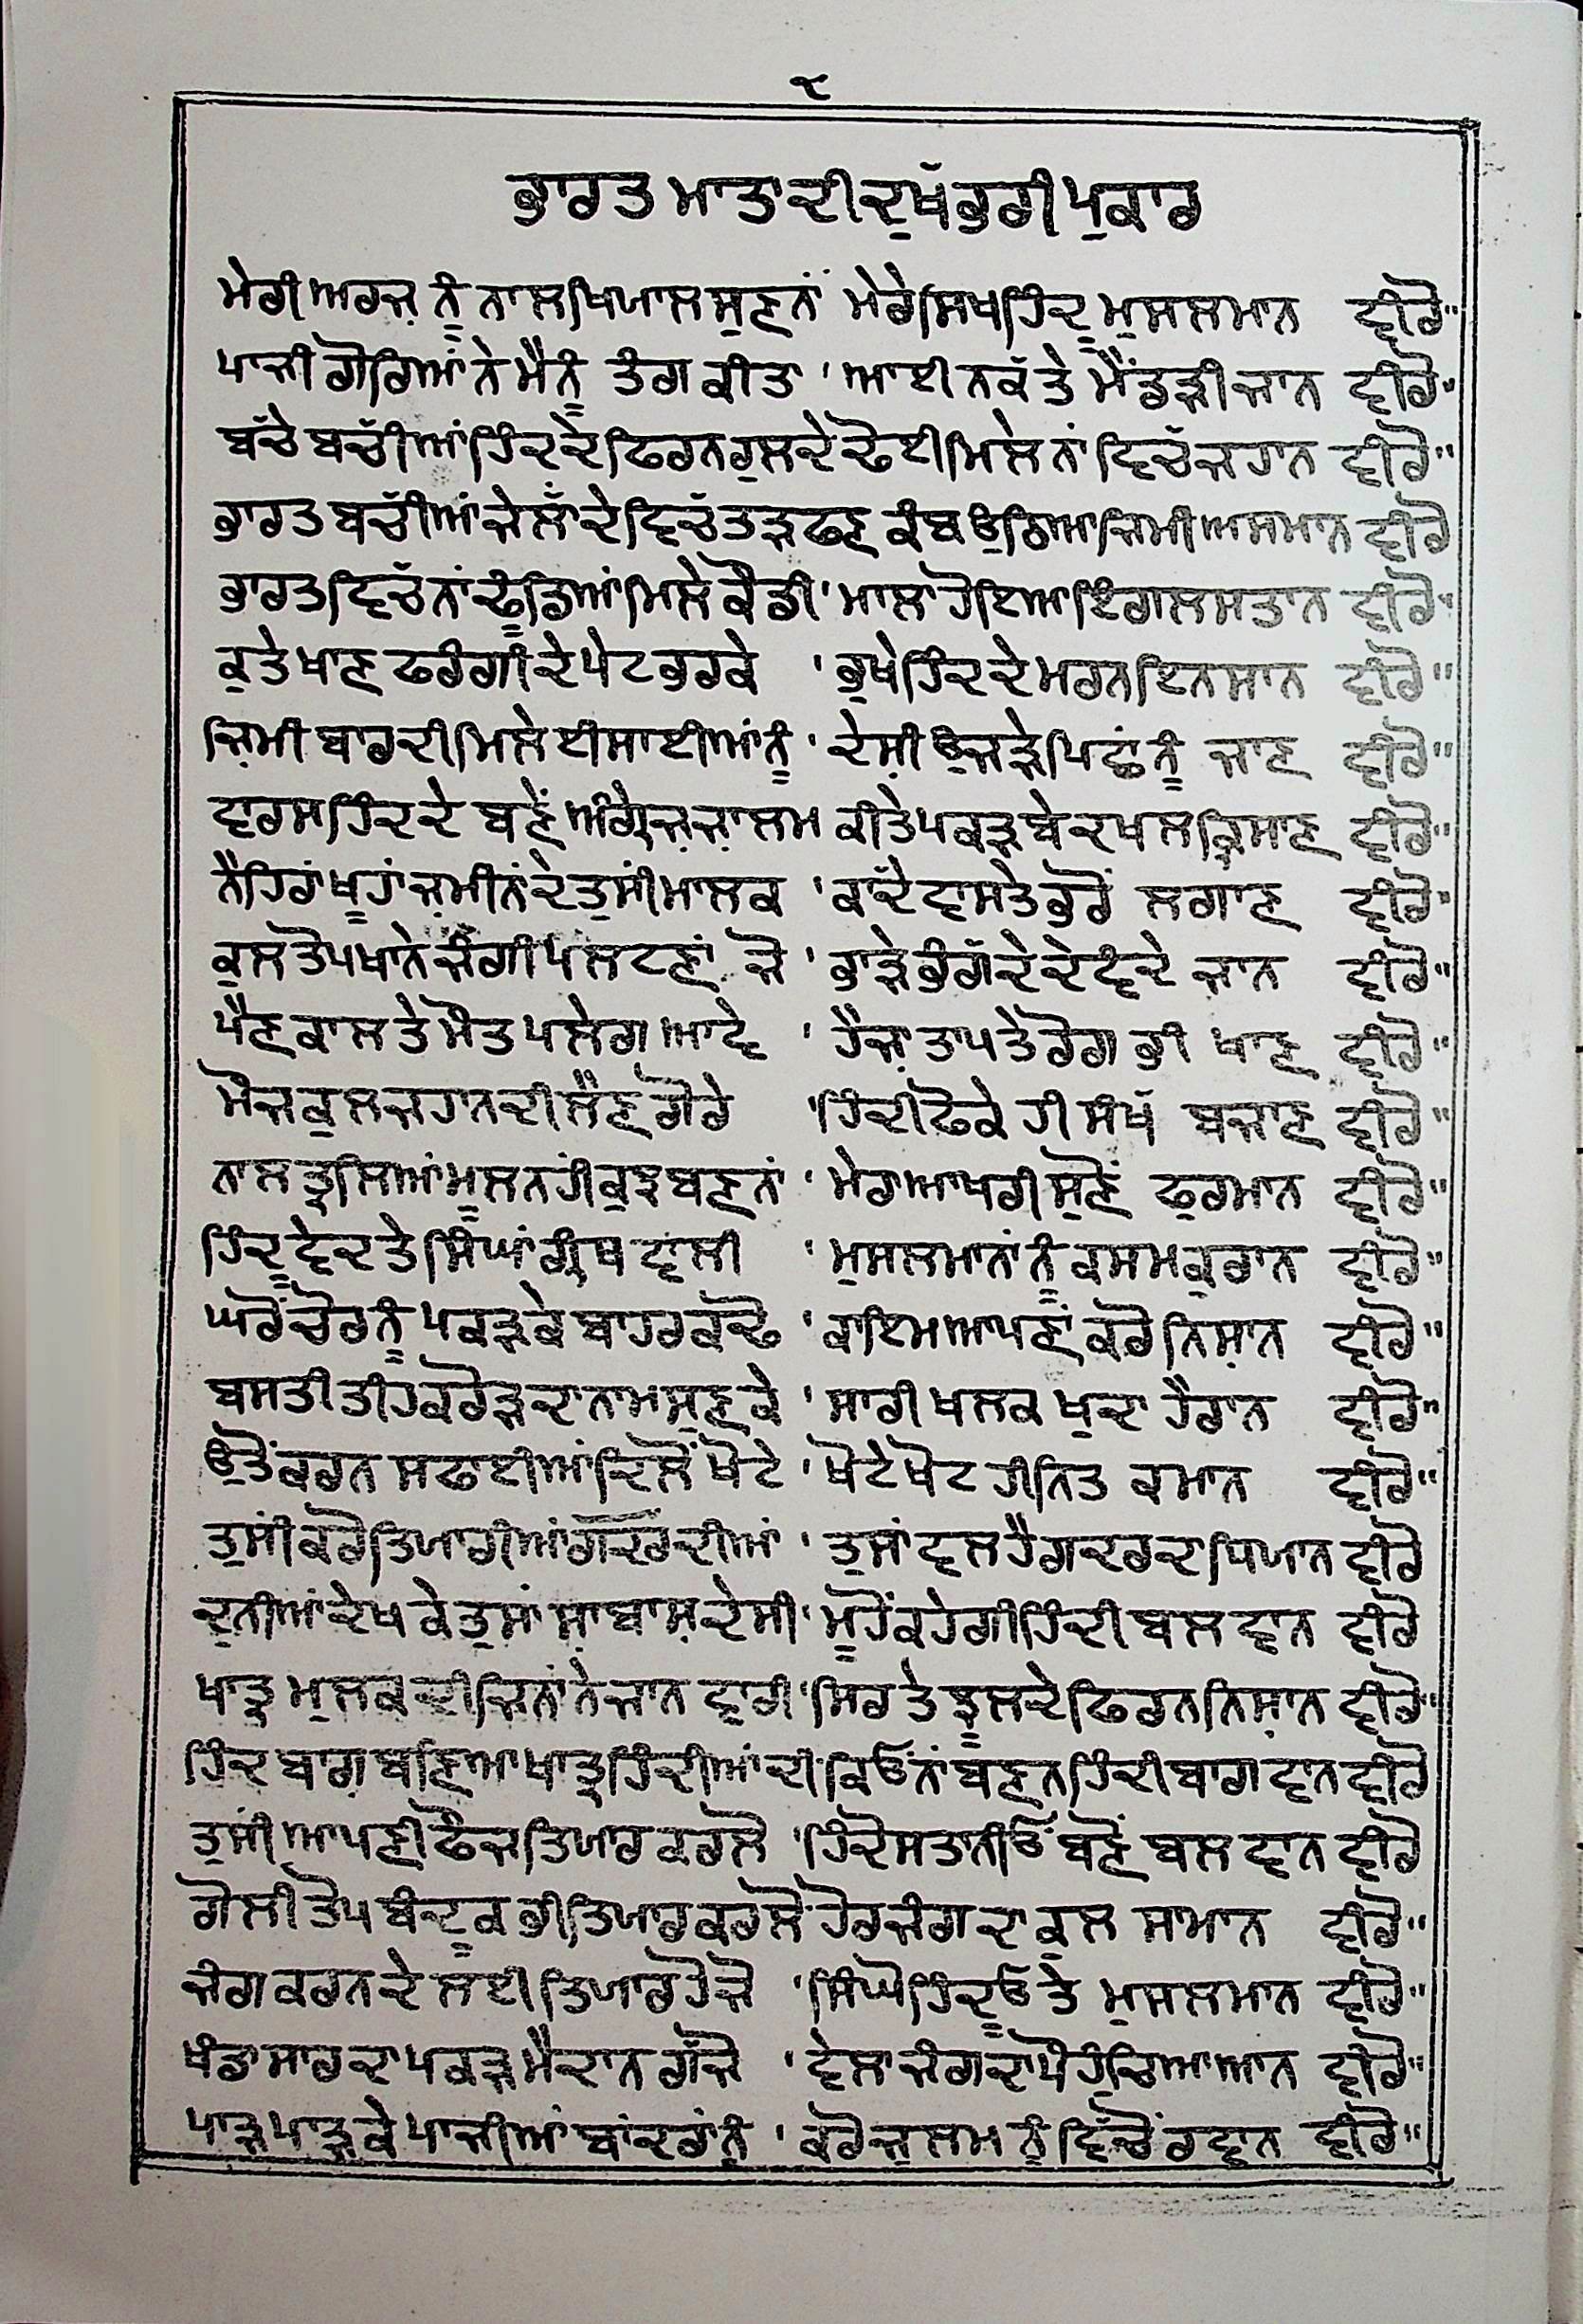 ੨
ਭਾਰਤ ਮਾਤਾ ਦੀ ਦੁਖੱ ਭਰੀ ਪੁਕਾਰ
ਮੇਰੀ ਅਰਜ਼ ਨੂੰ ਨਾਲ ਖਿਯਾਲ ਸੁਣਨਾਂ ਮੇਰੇ ਸਿਖ ਹਿੰਦੂ ਮੁਸਲਮਾਨ ਵੀਰੋ"
ਪਾਜੀ ਗੋਰਿਆਂ ਨੇ ਮੈਨੂੰ ਤੰਗ ਕੀਤਾ ' ਆਈ ਨਕੱ ਤੇ ਮੈਂਡੜੀ ਜਾਨ ਵੀਰੋ"
ਬੱਚੇ ਬਚੱੀਆਂ ਹਿੰਦ ਦੇ ਫਿਰਨ ਰੁਲਦੇ ਢੋਈ ਮਿਲੇ ਨਾਂ ਵਿਚੱ ਜਹਾਨ ਵੀਰੋ"
ਭਾਰਤ ਬਚੱੀਆਂ ਜੇਲਾਂ ਦੇ ਵਿਚੱ ਤੜਫਣ ਕੰਬ ਉਠਿਆ ਜਿਮੀ ਅਸਮਾਨ ਵੀਰੋ
ਭਾਰਤ ਵਿਚੱ ਨਾਂ ਢੂੰਡਿਆਂ ਮਿਲੇ ਕੌਡੀ ' ਮਾਲਾ ਹੋਇਆ ਇੰਗਲਸਤਾਨ ਵੀਰੋ"
ਕੁਤੇ ਖਾਣ ਫਰੰਗੀ ਦੇ ਪੇਟ ਭਰਕੇ ' ਭੁਖੇ ਹਿੰਦ ਦੇ ਮਰਨ ਇਨਸਾਨ ਵੀਰੋ"
ਜ਼ਿਮੀ ਬਾਰ ਦੀ ਮਿਲੇ ਈਸਾਈਆਂ ਨੂੰ ' ਦੇਸ਼ੀ ਉਜੜੇ ਪਿੰਡਾਂ ਨੂੰ ਜਾਣ ਵੀਰੋ"
ਵਾਰਸ ਹਿੰਦ ਦੇ ਬਣੇਂ ਅੰਗ੍ਰੇਜ਼ ਜ਼ਾਲਮ ਕੀਤੇ ਪਕੜ ਬੇਦਖਲ ਕ੍ਰਿਸਾਣ ਵੀਰੋ"
ਨੈਹਿਰਾਂ ਖੂਹਾਂ ਜ਼ਮੀਨਾਂ ਦੇ ਤੁਸੀਂ ਮਾਲਕ ' ਕਾਦੇੱ ਵਾਸਤੇ ਭਰੋਂ ਲਗਾਣ ਵੀਰੋ"
ਕੁਲ ਤੋਪਖਾਨੇ ਜੰਗੀ ਪਲਟਣਾਂ ਜੋ ' ਭਾੜੇ ਭੰਗੱ ਦੇ ਦੇਵੰਦੇ ਜਾਨ ਵੀਰੋ"
ਪੈਣ ਕਾਲ ਤੇ ਮੌਤ ਪਲੇਗ ਆਵੇ ' ਹੈਜ਼ਾ ਤਾਪ ਤੇ ਰੋਗ ਭੀ ਖਾਣ ਵੀਰੋ"
ਮੌਜ ਕੁਲ ਜਹਾਨ ਦੀ ਲੈਣ ਗੋਰੇ ' ਹਿੰਦੀ ਫੋਕੇ ਹੀ ਸੰਖੱ ਬਜਾਣ ਵੀਰੋ"
ਨਾਲ ਤ੍ਰਸਿਆਂ ਮੂਲ ਨਹੀਂ ਕੁਝ ਬਣਨਾਂ ' ਮੇਰਾ ਆਖਰੀ ਸੁਣੋਂ ਫੁਰਮਾਨ ਵੀਰੋ"
ਹਿੰਦੂ ਵੇਦ ਤੇ ਸਿੰਘਾਂ ਗ੍ਰੰਥ ਵਾਲੀ ' ਮੁਸਲਮਾਨਾਂ ਨੂੰ ਕਸਮ ਕੁਰਾਨ ਵੀਰੋ"
ਘਰੋਂ ਚੋਰ ਨੂੰ ਪਕੜਕੇ ਬਾਹਰ ਕੱਢੋ ' ਕਾਇਮ ਆਪਣਾਂ ਕਰੋ ਨਿਸ਼ਾਨ ਵੀਰੋ"
ਬਸਤੀ ਤੀਹ ਕਰੋੜ ਦਾ ਨਾਮ ਸੁਣਕੇ ' ਸਾਰੀ ਖਲਕ ਖੁਦਾ ਹੈਰਾਨ ਵੀਰੋ"
ਉਤੋਂ ਕਰਨ ਸਫਾਈਆਂ ਦਿਲੋਂ ਖੋਟੇ ' ਖੋਟੇ ਖੋਟ ਹੀ ਨਿਤ ਕਮਾਨ ਵੀਰੋ"
ਤੁਸੀਂ ਕਰੋ ਤਿਯਾਰੀਆਂ ਗ਼ਦਰ ਦੀਆਂ ' ਤੁਸਾਂ ਵਲ ਹੈ ਗਦਰ ਦਾ ਧਿਯਾਨ ਵੀਰੋ
ਦੁਨੀਆਂ ਦੇਖ ਕੇ ਤੁਸਾਂ ਸ਼ਾਬਾਸ਼ ਦੇਸੀ ' ਮੂਹੋਂ ਕਹੇਗੀ ਹਿੰਦੀ ਬਲਵਾਨ ਵੀਰੋ
ਖਾਤ੍ਰ ਮੁਲਕ ਦੀ ਜਿਨਾਂ ਨੇ ਜਾਨ ਵਾਰੀ ' ਸਿਰ ਤੇ ਝੂਲਦੇ ਫਿਰਨ ਨਿਸ਼ਾਨ ਵੀਰੋ"
ਹਿੰਦ ਬਾਗ਼ ਬਣਿਆ ਖਾਤ੍ਰ ਹਿੰਦੀਆਂ ਦੀ ' ਕਿਉਂ ਨਾਂ ਬਣਨ ਹਿੰਦੀ ਬਾਗਵਾਨ ਵੀਰੋ
ਤੁਸੀਂ ਆਪਣੀ ਫੌਜ ਤਿਯਾਰ ਕਰਲੋ ' ਹਿੰਦੋਸਤਾਨੀਓਂ ਬਣੋਂ ਬਲਵਾਨ ਵੀਰੋ
ਗੋਲੀ ਤੋਪ ਬੰਦੂਕ ਭੀ ਤਿਯਾਰ ਕਰਲੋ ਹੋਰ ਜੰਗ ਦਾ ਕੁਲ ਸਾਮਾਨ ਵੀਰੋ"
ਜੰਗ ਕਰਨ ਦੇ ਲਈ ਤਿਯਾਰ ਹੋਜੋ ' ਸਿੰਘੋ ਹਿੰਦੂਓ ਤੇ ਮੁਸਲਮਾਨ ਵੀਰੋ"
ਖੰਡਾ ਸਾਰ ਦਾ ਪਕੜ ਮੈਦਾਨ ਗੱਜੋ ' ਵੇਲਾ ਜੰਗ ਦਾ ਪੌਹੁੰਚਿਆ ਆਨ ਵੀਰੋ"
ਪਾੜ ਪਾੜ ਕੇ ਪਾਜੀਆਂ ਬਾਂਦਰਾਂ ਨੂੰ ' ਕਰੋ ਜ਼ੁਲਮ ਨੂੰ ਵਿੱਚੋਂ ਰਵਾਨ ਵੀਰੋ"